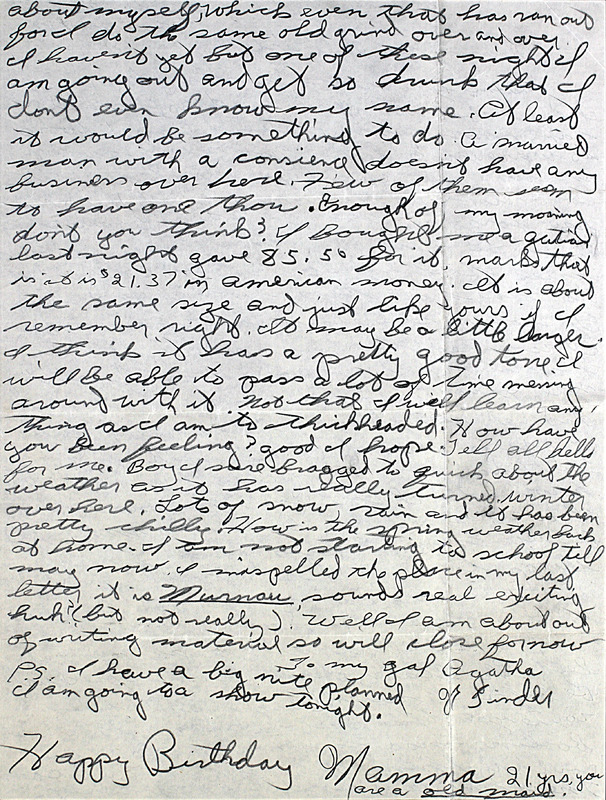 about myself, which even that has ran out
for I do the same old grind over and over.
I havent yet but one of these nights I
am going out and get so drunk that I
dont even know my name. At least
it would be something to do. A married
man with a consience doesnt have any
business over here. Few of them seem
to have one thou. Enough of my moning
dont you think? I bought me a guitar
last night gave 85.50 for it, marks that
is. it is $21.37 in american money. It is about
the same size and just like yours if I
remember right. It may be a little larger.
I think it has a pretty good tone I
will be able to pass a lot of time
around with it. not that I will learn any
thing as I am to thickheaded. How have
you been feeling? good I hope. Tell all hello
for me. Boy I sure bragged to quick about the
weather as it has really turned winter
over here. Lots of snow, rain and it has been
pretty chilly. How is the spring weather back
at home. I am not starting to school till
may now. I misspelled the place in my last
letter it is Murnau, sounds real exciting
huh? (but not really). Well I am about out
of writing material so will close for now
To my gal Agatha
Ps. I have a big nite planned
I am going to a show tonight.
Happy Birthday Mamma 21 yrs, you
are a old maid.